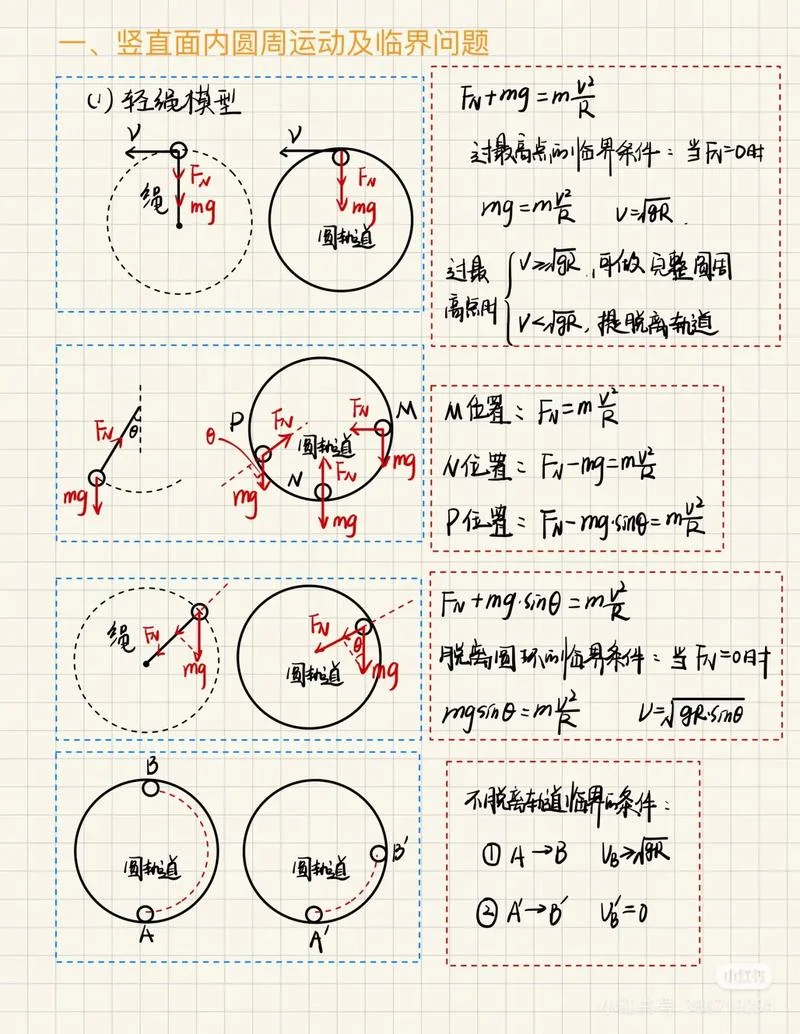 一、竖直面内圆周运动及临界问题
(1)轻绳模型
V
F_N
绳
mg
V
F_N
mg
圆轨道
F_N+mg=m\frac{v²}{R}
过最高点的临界条件:当F_N=0时
mg=m\frac{v²}{R} V=√gR.
过最高点时
V≥√gR,可做完整圆周
V<√gR,提脱离轨道
F_N
θ
mg
P
θ
F_N
圆轨道
F_N
M
mg
N
F_N
mg
mg
M位置:F_N=m\frac{v²}{R}
N位置:F_N-mg=m\frac{v²}{R}
P位置:F_N-mg·sinθ=m\frac{v²}{R}
绳
F_N
mg
F_N
θ
mg
圆轨道
F_N+mg·sinθ=m\frac{v²}{R}
脱离圆环的临界条件:当F_N=0时
mgsinθ=m\frac{v²}{R} V=√gR·sinθ
B
圆轨道
A
圆轨道
B′
A′
不脱离轨道临界的条件:
① A→B V_B≥√gR
② A′→B′ V_B′=0
小红书